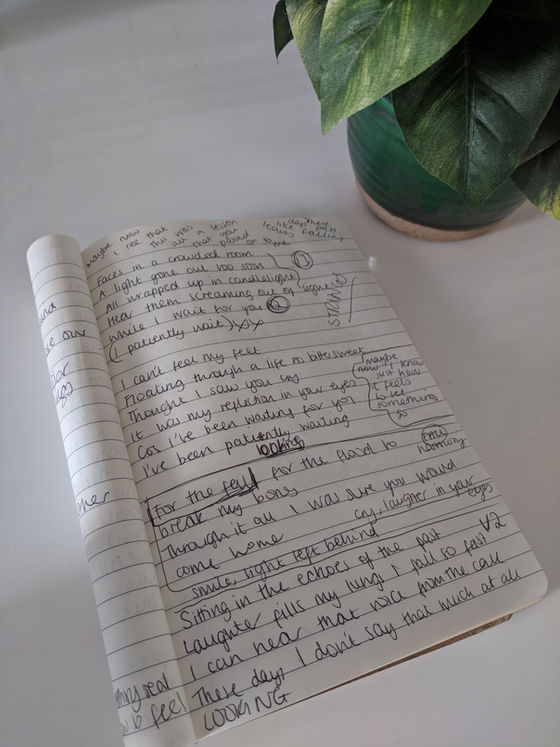 maybe now
I see that
this was a lesson
that you
on to me
days there
like
leaves falling
Faces in a crowded room
A light gone out too soon
All wrapped up in candlelight
Hear them screaming out of sight
While I wait for you
(I patiently wait)
1
2
STRINGS
I can't feel my feet
Floating through a life so bittersweet
Thought I saw you cry
It was my reflection in your eyes
Cos I've been waiting for you
I've been patiently waiting
looking
maybe
now I know
just how
it feels
to let
something
go
For the fall for the flood to
break my bones
harmony
Through it all I was sure you would
come home
cry, laughter in your
eyes
smile, light left behind
V2
Sitting in the echoes of the past
Laughter fills my lungs I fall so fast
I can hear that voice from the call
These days I don't say that much at all
LOOKING
our
real
to feel